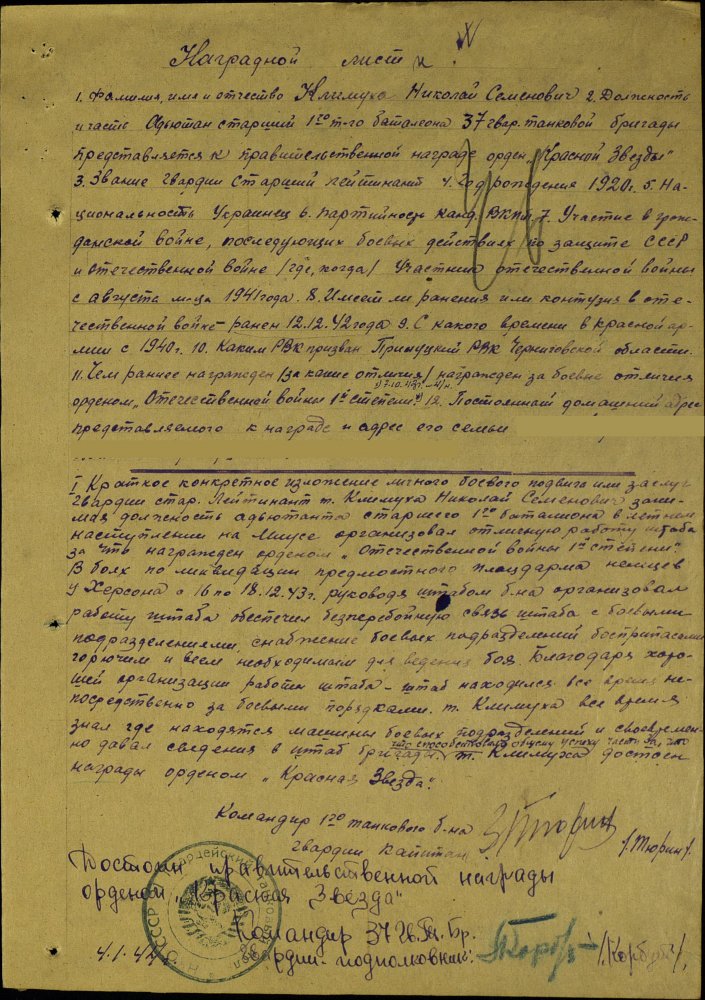 Наградной лист
1. Фамилия, имя и отчество Климуха Николай Семенович 2. Должность
и часть Адьютан старший 1го т-го баталеона 37 гвар. танковой бригады
представляется к правительственной награде орден „Красной Звезды"
3. Звание гвардии старший лейтинант 4. Год рождения 1920г. 5. На-
циональность Украинец 6. Партийность канд. ВКПб 7. Участие в граж-
данской войне, последующих боевых действиях по защите СССР
и отечественной войне /где, когда/ Участник отечественной войны
с августа м-ца 1941 года. 8. Имеет ли ранения или контузия в оте-
чественной войне ранен 12.12.42 года 9. С какого времени в красной ар-
мии с 1940г. 10. Каким РВК призван Прилуцкий РВК Черниговской области.
11. Чем раннее награжден /за какие отличия/ награжден за боевые отличия
орденом „Отечественной войны 1й степени" 12. Постоянный домашний адрес
представляемого к награде и адрес его семьи
I Краткое конкретное изложение личного боевого подвига или заслуг
Гвардии стар. Лейтинант т. Климуха Николай Семенович зани-
мая должность адьютанта старшего 1го баталиона в летнем
наступлении на Миусе организовал отличную работу штаба
за что награжден орденом „Отечественной войны 1й степени".
В боях по ликвидации предмостного плацдарма немцев
у Херсона с 16 по 18.12.43г. руководя штабом б-на организовал
работу штаба обеспечил безперебойную связь штаба с боевыми
подразделениями, снабжение боевых подразделений боеприпасами
горючим и всем необходимым для ведения боя. Благодаря хоро-
шей организации работы штаба - штаб находился все время не-
посредственно за боевыми порядками. т. Климуха все время
знал где находятся машины боевых подразделений и своевремен-
но давал сведения в штаб бригады, что способствовало общему успеху части. За что
т. Климуха достоен
награды орденом „Красная Звезда".
Командир 1го танкового б-на
гвардии Капитан /Тюрин/.
Достоин правительственной награды
орденом „Красная Звезда"
Командир 37 Гв. Тп. Бр.
Гвардии - подполковник: /Корбут/.
4.1.44